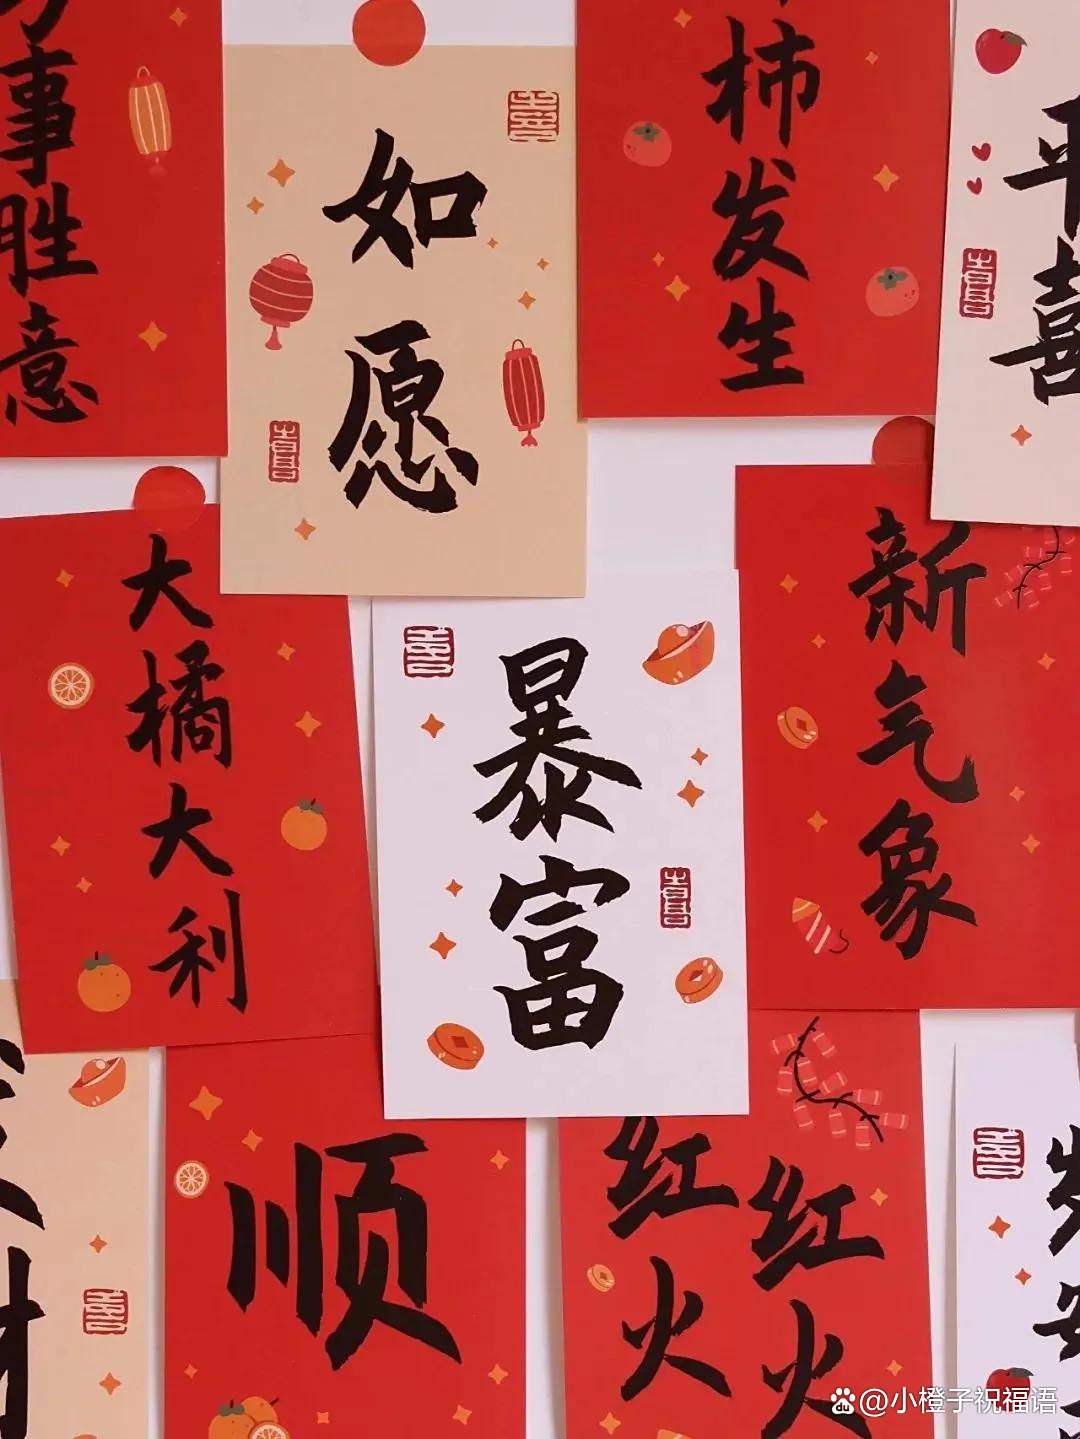 事胜意
如愿
柿发生
平
喜
大橘大利
暴富
新气象
财
顺
红红
火火
岁
安
@小橙子祝福语